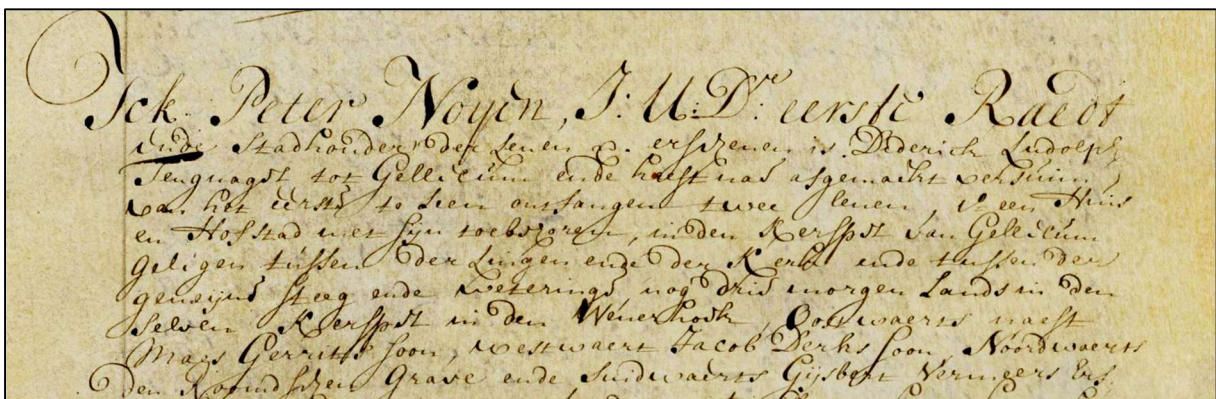 Ick Peter Noyen, J: U: Dre. eerste Raedt
ende Stadhouder der Lenen &c. erschenen is Diderick Ludolph
Tengnagel tot Gellicum ende heeft nae afgemaeckt versuim
van het eerste te leen ontfangen twee lenen, een Huis
en Hofstad met sijn toebehoren, in den Kerspel van Gellicum
geligen tussen der Lingen ende der Kerk ende tussen der
gemeijne steeg ende weteringe nog drie morgen Lands in den
selven Kerspel in den Wenerhoek, Oostwaerts naest
Maes Gerrits soon, westwaert Jacob Derks soon, Noordwaerts
den Grave ende suidwaerts Gijsbert Vermeers Erf